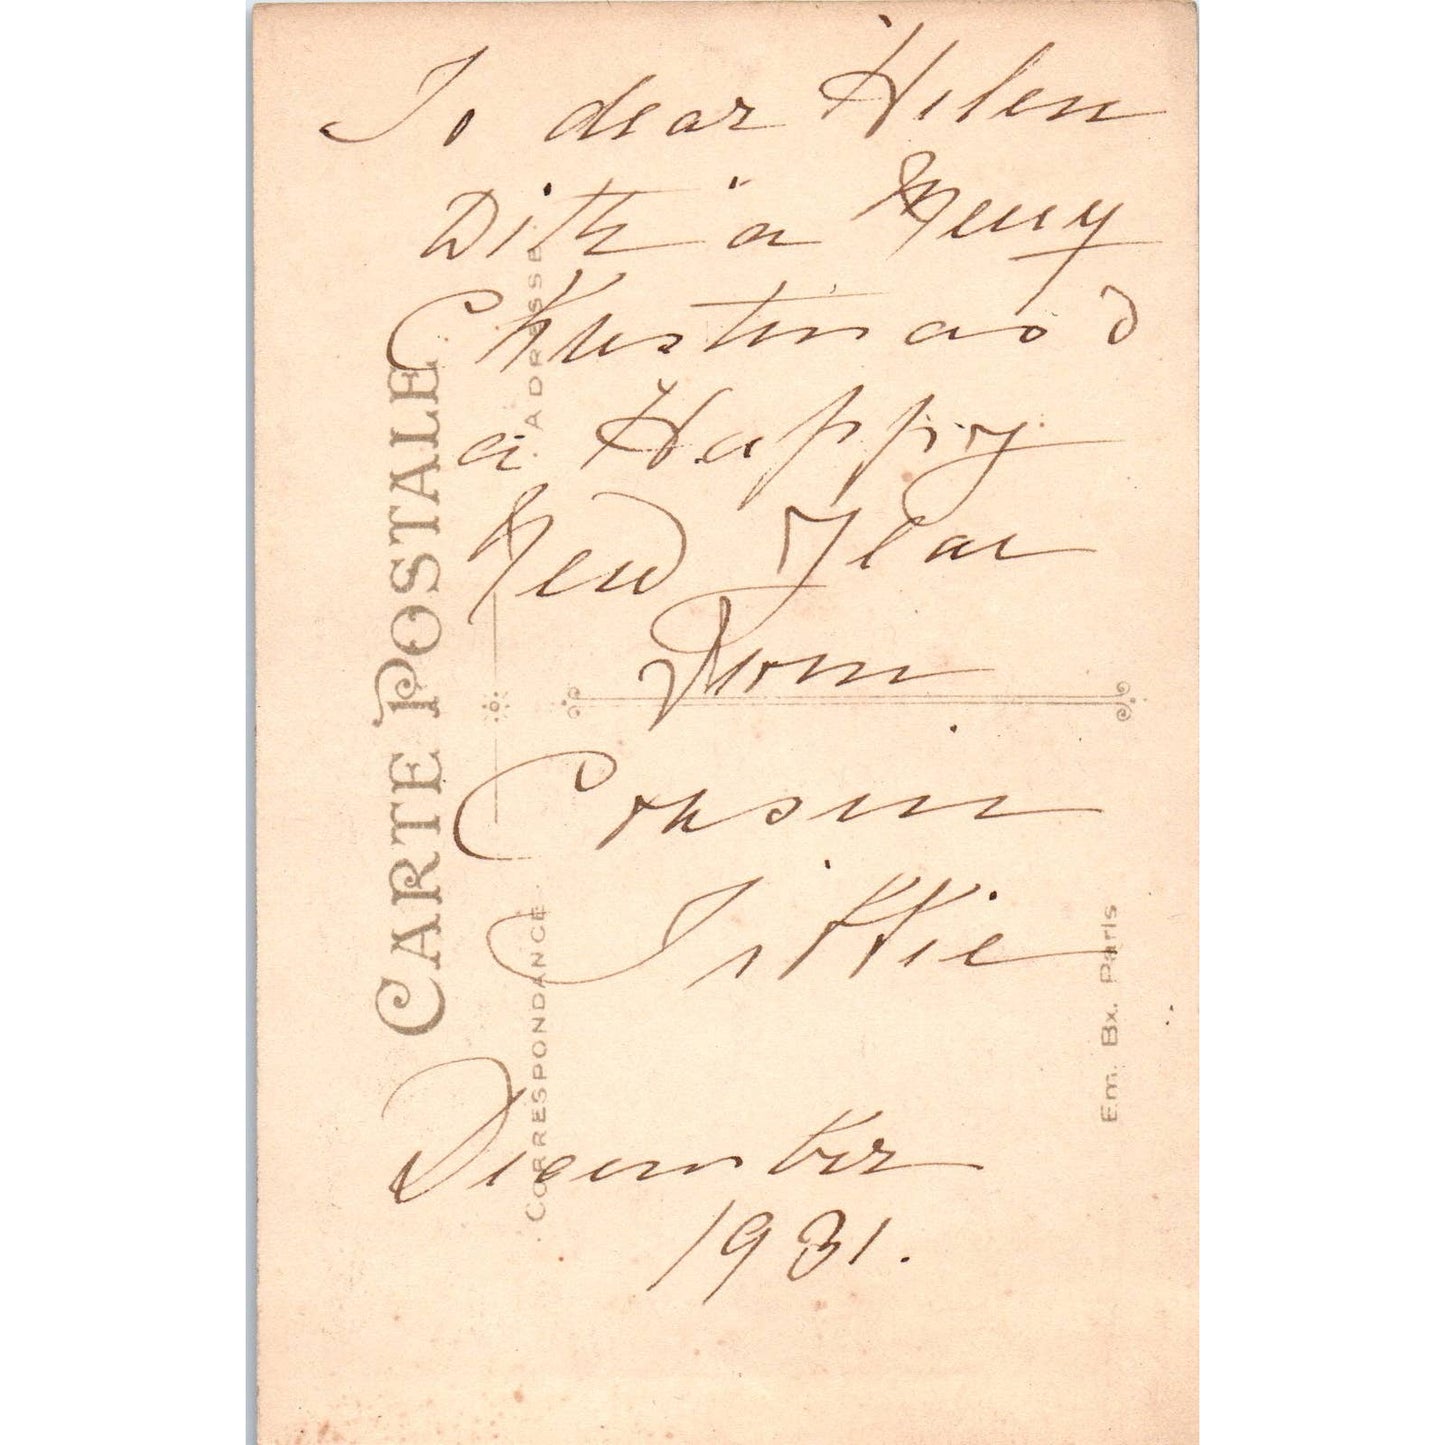 To dear Helen
With a Merry
Christmas &
a Happy
New Year
From
Cousin
December
1931.
CARTE POSTALE
CORRESPONDANCE
ADRESSE
Em. Bx. Paris